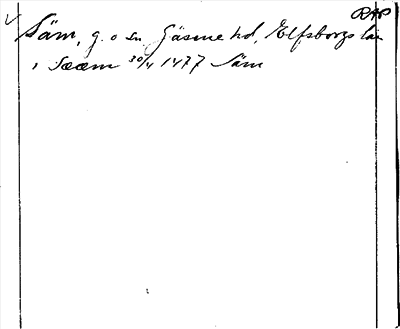 RAP
V Säm, g. o sn. Gäsene hd, Elfsborgs län
, Sææm 30/4 1477 Säm